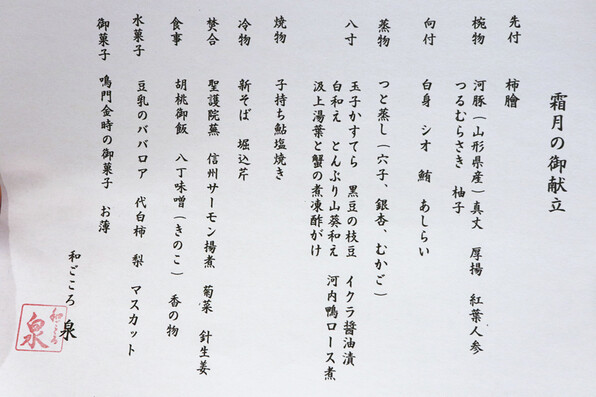 霜月の御献立
先付　柿膾
椀物　河豚（山形県産）真丈　厚揚　紅葉人参
つるむらさき　柚子
向付　白身　シオ　鮪　あしらい
蒸物　つと蒸し（穴子、銀杏、むかご）
八寸　玉子かすてら　黒豆の枝豆　イクラ醤油漬
白和え　とんぶり山葵和え　河内鴨ロース煮
汲上湯葉と蟹の煮凍酢がけ
焼物　子持ち鮎塩焼き
冷物　新そば　堀込芹
焚合　聖護院蕪　信州サーモン揚煮　菊菜　針生姜
食事　胡桃御飯　八丁味噌（きのこ）　香の物
水菓子　豆乳のババロア　代白柿　梨　マスカット
御菓子　鳴門金時の御菓子　お薄
和ごころ　泉
和ごころ
泉